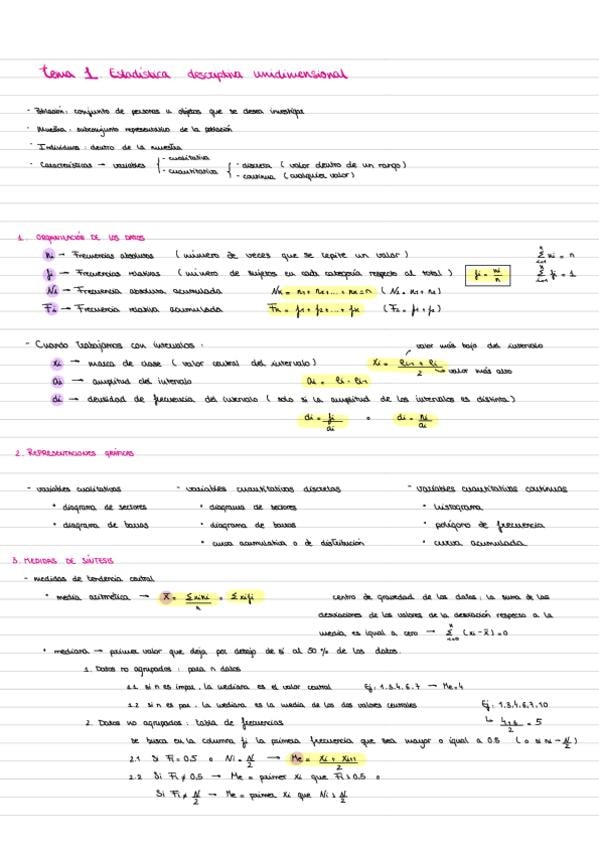 Tema 1. Estadística descriptiva unidimensional
- Población: conjunto de personas u objetos que se desea investigar
- Muestra: subconjunto representativo de la población
- Individuos: dentro de la muestra
- Características → variables { - cualitativa
- cuantitativa { - discreta (valor dentro de un rango)
- continua (cualquier valor)
1. ORGANIZACIÓN DE LOS DATOS
ni → Frecuencias absolutas (número de veces que se repite un valor) Σ ni = n
fi → Frecuencias relativas (número de sujetos en cada categoría respecto al total) fi = ni/n Σ fi = 1
Ni → Frecuencia absoluta acumulada Nk = n1 + n2 + ... + nk = n (N2 = n1 + n2)
Fi → Frecuencia relativa acumulada Fk = f1 + f2 + ... + fk (F2 = f1 + f2)
- Cuando trabajamos con intervalos: valor más bajo del intervalo
xi → marca de clase (valor central del intervalo) xi = (ei-1 + ei)/2 → valor más alto
ai → amplitud del intervalo ai = ei - ei-1
di → densidad de frecuencia del intervalo (solo si la amplitud de los intervalos es distinta)
di = fi/ai o di = ni/ai
2. REPRESENTACIONES GRÁFICAS
- variables cualitativas - variables cuantitativas discretas - variables cuantitativas continuas
• diagrama de sectores • diagrama de sectores • histograma
• diagrama de barras • diagrama de barras • polígono de frecuencia
• curva acumulativa o de distribución • curva acumulada
3. MEDIDAS DE SÍNTESIS
- medidas de tendencia central
• media aritmética → X̄ = Σxini/n = Σxifi centro de gravedad de los datos: la suma de las
desviaciones de los valores de la desviación respecto a la
media es igual a cero → Σ (xi - x̄) = 0
• mediana → primer valor que deja por debajo de sí al 50% de los datos.
1. Datos no agrupados: para n datos
1.1 si n es impar, la mediana es el valor central Ej: 1.3.4.6.7 → Me=4
1.2 si n es par, la mediana es la media de los dos valores centrales Ej: 1.3.4.6.7.10
↳ (4+6)/2 = 5
2. Datos no agrupados: tabla de frecuencias
se busca en la columna fi la primera frecuencia que sea mayor o igual a 0.5 (o si ni → N/2)
2.1 Si Fi = 0.5 o Ni = N/2 → Me = (xi + xi+1)/2
2.2 Si Fi ≠ 0.5 → Me = primer xi que Fi > 0.5 o
Si Fi ≠ N/2 → Me = primer xi que Ni > N/2